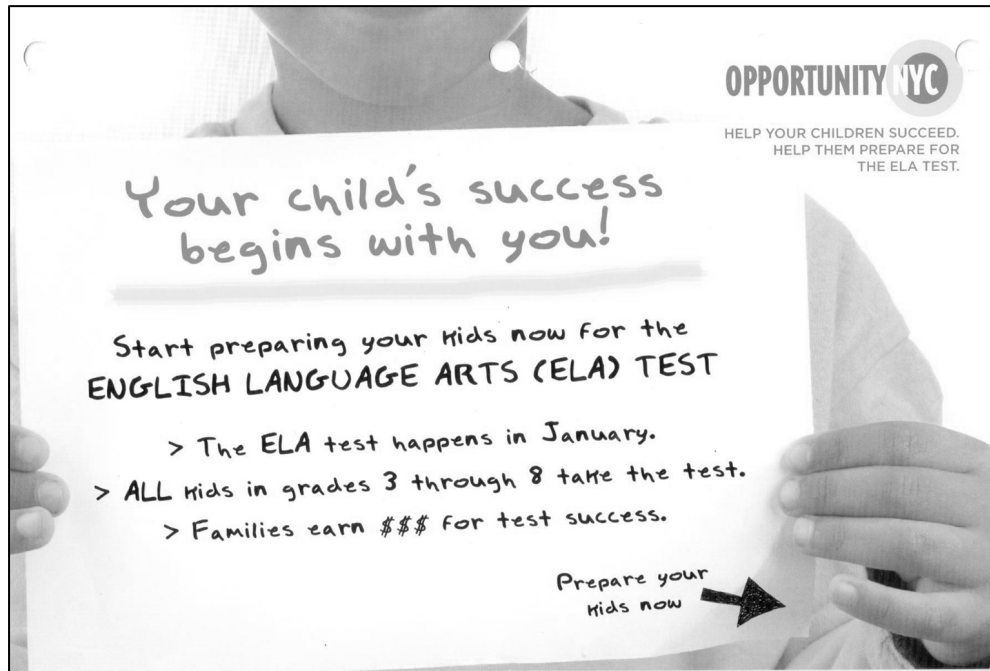 OPPORTUNITY NYC
HELP YOUR CHILDREN SUCCEED.
HELP THEM PREPARE FOR
THE ELA TEST.
Your child's success
begins with you!
Start preparing your kids now for the
ENGLISH LANGUAGE ARTS (ELA) TEST
> The ELA test happens in January.
> ALL kids in grades 3 through 8 take the test.
> Families earn $$$ for test success.
Prepare your
kids now